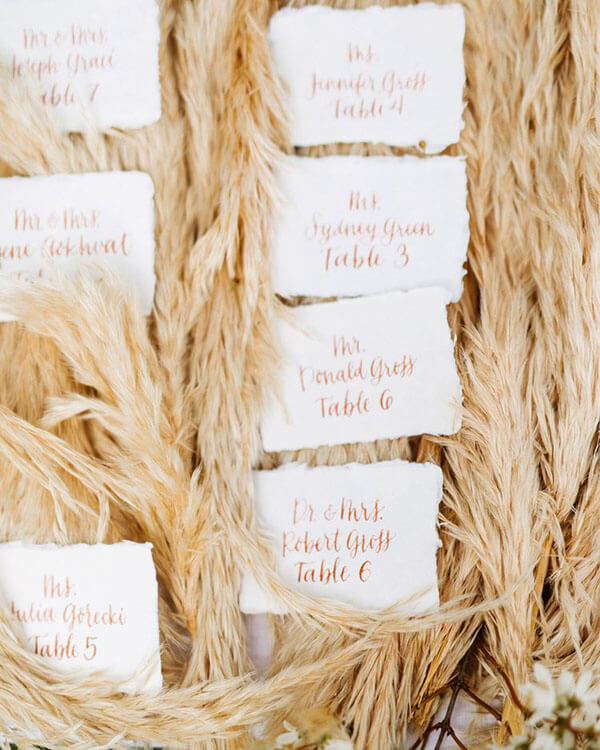 Mr & Mrs.
Joseph Grace
Table 7
Ms.
Jennifer Gross
Table 4
Mr & Mrs.
Gokhvat
Ms.
Sydney Green
Table 3
Mr.
Donald Gross
Table 6
Dr. & Mrs.
Robert Gross
Table 6
Ms.
Julia Gorecki
Table 5